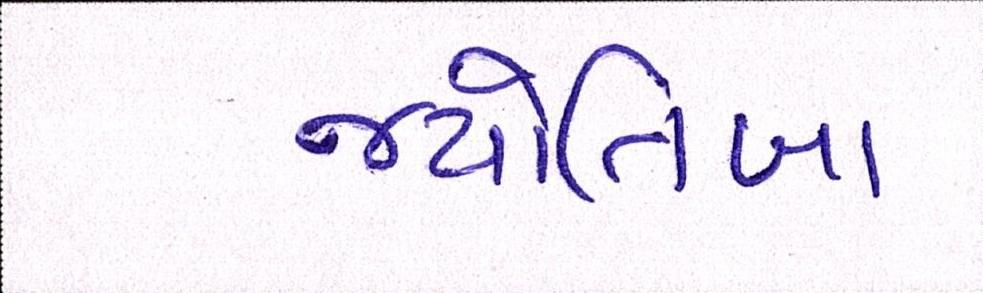 જ્યોતિબા